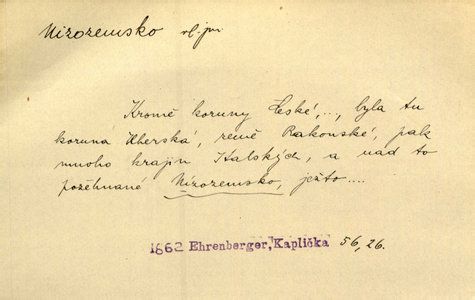 Nizozemsko vl. jm.
Kromě koruny České,..., byla tu
koruná Uherská, země Rakouské, pak
mnoho krajin Italských, a nad to
požehnané Nizozemsko, ježto....
1662 Ehrenberger, Kaplička 56, 26.